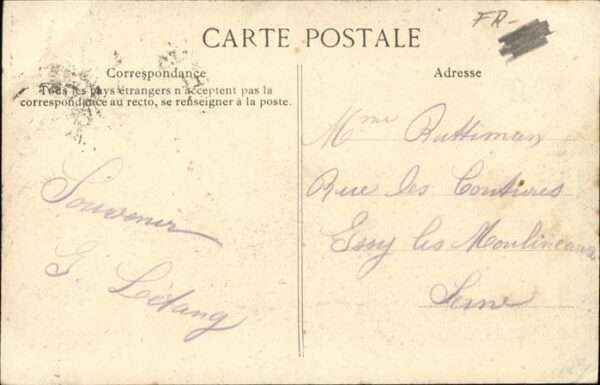 FR-
CARTE POSTALE
Correspondance
Tous les pays étrangers n'acceptent pas la
correspondance au recto, se renseigner à la poste.
Souvenir
G. Létang
Adresse
Mme Ruttiman
Rue les
Issy les Moulineaux
Seine